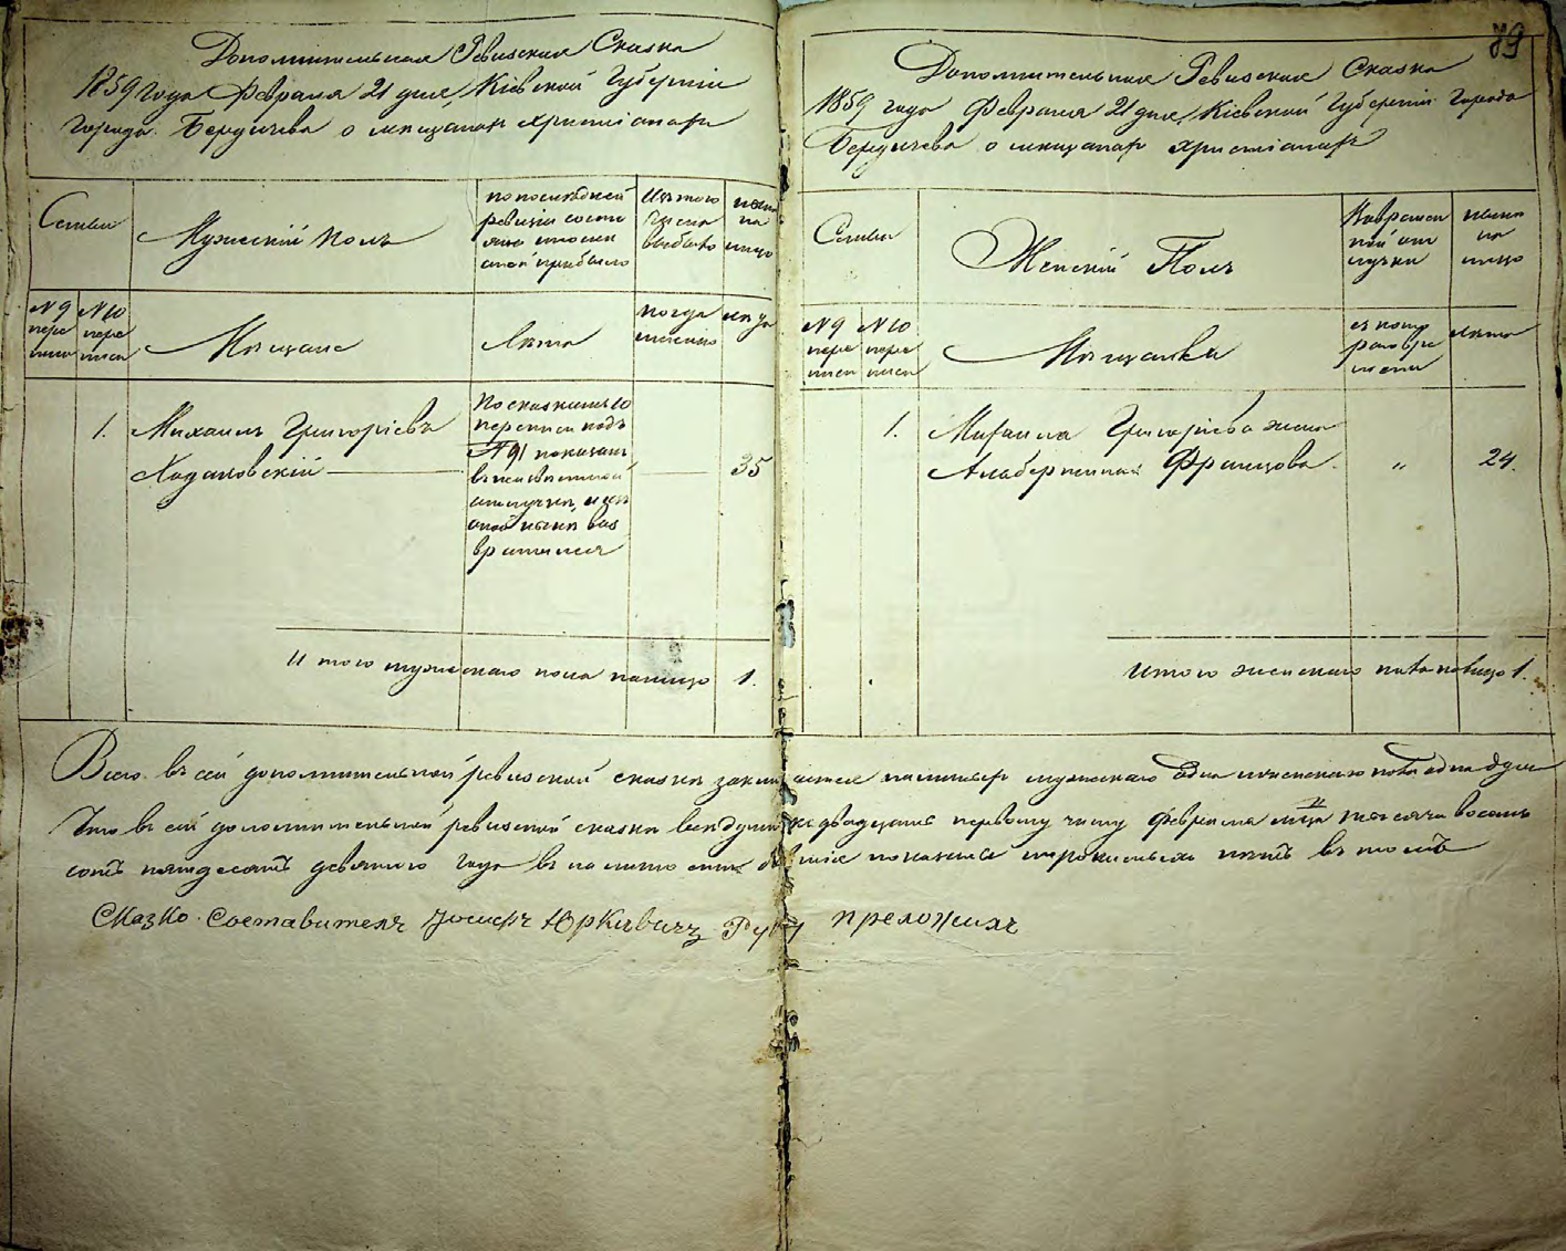 89
Дополнительная Ревизская Сказка
1859 года Февраля 21 дня, Кіевской Губерніи
города Бердичева о мещанах христіанах
Семьи
Мужескій полъ
по последней
ревизіи состо
яло и после
оной прибыло
Изъ того
числа
выбыло
ныне
на
лицо
№ 9
пере
писи
№ 10
пере
писи
Мещане
Лета
когда
именно
лета
1.
Михаилъ Григоріевъ
Ходаковскій
По сказкамъ 10
переписи подъ
№ 91 показанъ
отлучке, и изъ
оной ныне воз
вратился
35
Итого мужескаго пола налицо 1.
Дополнительная Ревизская Сказка
1859 года Февраля 21 дня, Кіевской Губерніи города
Бердичева о мещанах христіанах
Семьи
Женскій Полъ
Во времен
ной от
лучке
ныне
на
лицо
№ 9
пере
писи
№ 10
пере
писи
Мещанки
съ кото
раго вре
мени
лета
1.
Михаила Григоріева жена
Францова
"
24.
Итого женскаго пола налицо 1.
Всего въ сей дополнительной ревизской сказке налицо мужескаго одна и женскаго пола одна душа
Что въ сей дополнительной ревизской сказке все души къ двадцать первому числу февраля м-ца тысяча восемь
сотъ пятьдесятъ девятого года въ налично сти показаны и прописныхъ нетъ въ томъ
Сказко Составитель Юркивичъ Руку преложилъ